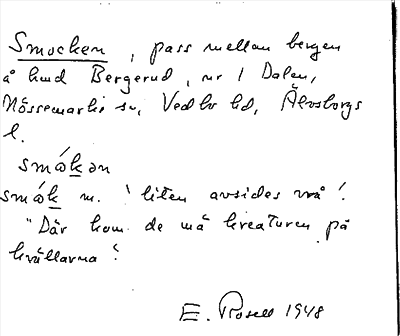 Smocken, pass mellan bergen
å hmd Bergerud, nr 1 Dalen,
Nössemarks sn, Vedbo hd, Älvsborgs
l.
smókən
smók m. 'liten avsides vrå'.
"Där kom de må kreaturen på
kvällarna".
E. Rosell 1948